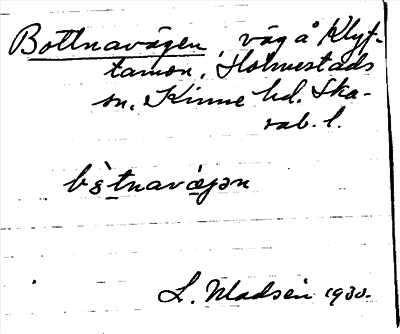 Bottnavägen, väg å Klyf-
tamon, Holmestads
sn, Kinne hd. Ska-
rab. l.
bɛ̀tnavæ̀gən
L. Madsén 1930.